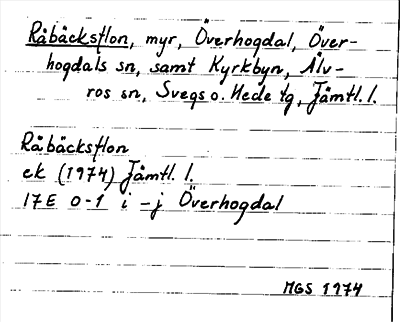 Råbäcksflon, myr, Överhogdal, Över-
hogdals sn, samt Kyrkbyn, Älv-
ros sn, Svegs o. Hede tg, Jämtl. l.
Råbäcksflon
ek (1974) Jämtl. l.
17E 0-1 i-j Överhogdal
MGS 1974